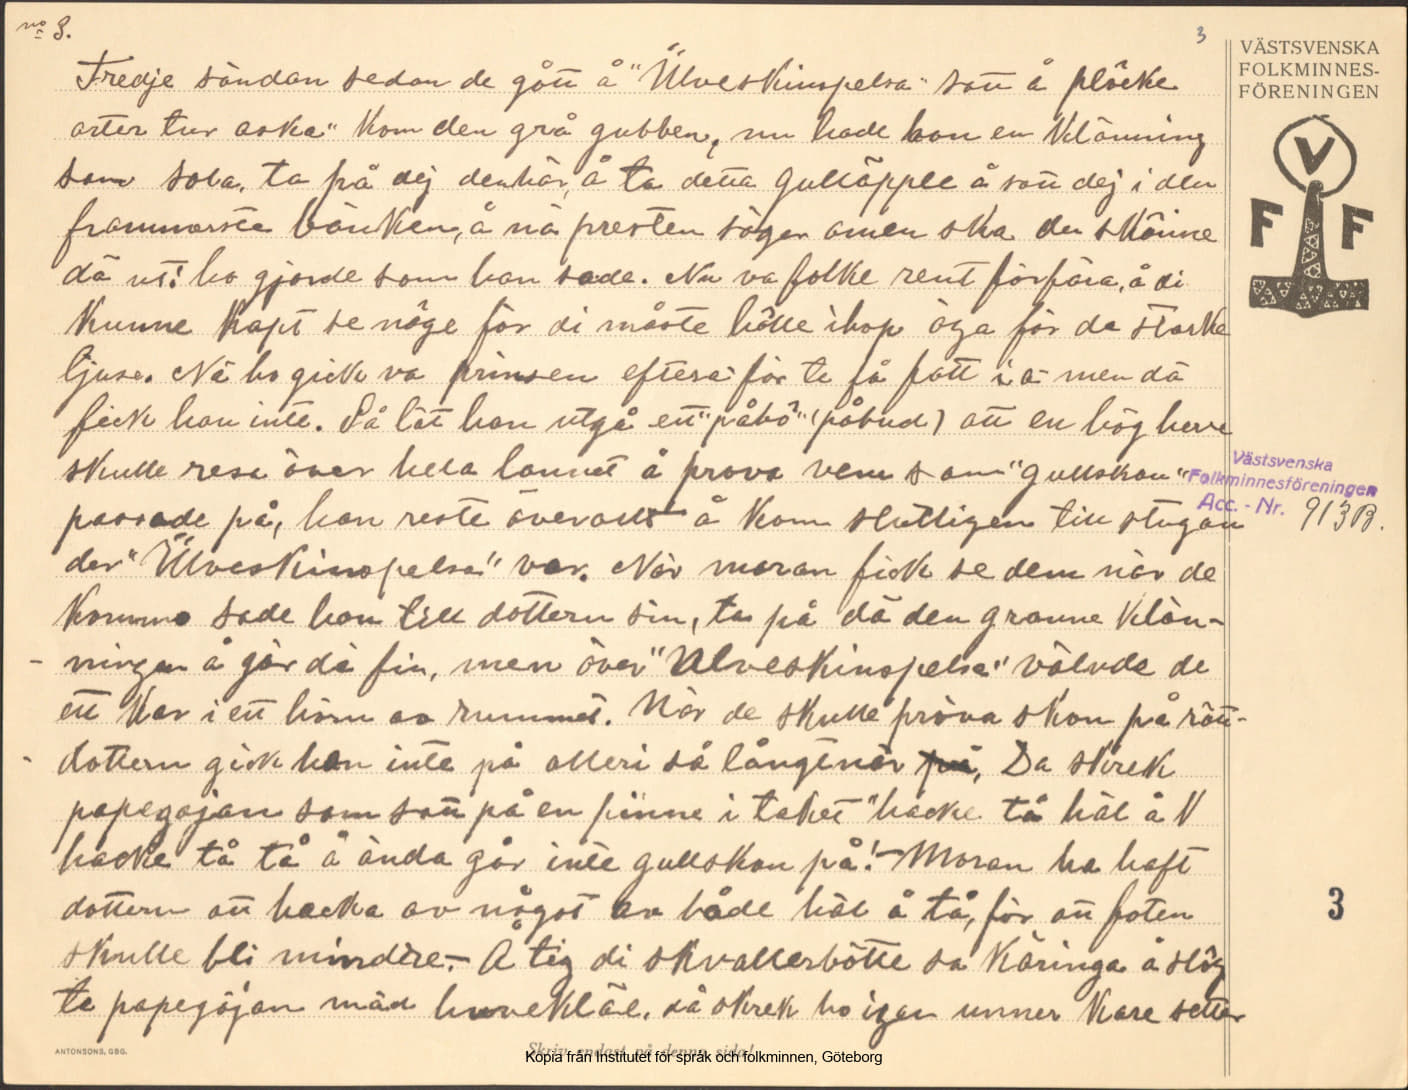 no 3.
3
Tredje söndan sedan de gått å "Ülveskinspelsa" satt å plöcke
ärter tur aska" Kom den grå gubben, nu hade han en klänning
som sola. ta på dej denhär, å ta detta gulläpple å sätt dej i den
frammerste bänken, å nä presten säger amen ska du skönne
dä ut! ho gjorde som han sade. Nu va folke rent förfära, å di
kunne knapt se nöge för di måste hölle ihop öga för de starke
ljuse. Nä ho gick va prinsen efter a för te få fatt i a men dä
fick han inte. Så lät han utgå ett "påbö" (påbud) att en hög herre
skulle resa över hela lannet å prova vem som "gullskon"
passade på, han reste överallt å kom slutligen till stugan
der "Ülveskinspelsa" var. När moran fick se dem när de
kommo sade hon till dottern sin, ta på dä den granne klän-
ningen å gör dä fin, men över "Ulveskinspelsa" välvde de
ett kar i ett hörn av rummet. När de skulle pröva skon på rätt-
dottern gick han inte på alleri så långtnär, Da skrek
papegojan som satt på en pinne i taket "hacke tå häl å
hacke tå tå å ända går inte gullskon på!– Moran ha haft
dottern att hacka av något av både häl å tå, för att foten
skulle bli mindre.– Å tig di skvallerbötte sa käringa å slög
te papegöjan mäd huvekläe, då skrek ho igen unner kare setter
VÄSTSVENSKA
FOLKMINNES-
FÖRENINGEN
V
F F
Västsvenska
Folkminnesföreningen
Acc.-Nr. 913B.
3
ANTONSONS, GBG.
Skriv endast på denna sida!
Kopia från Institutet för språk och folkminnen, Göteborg